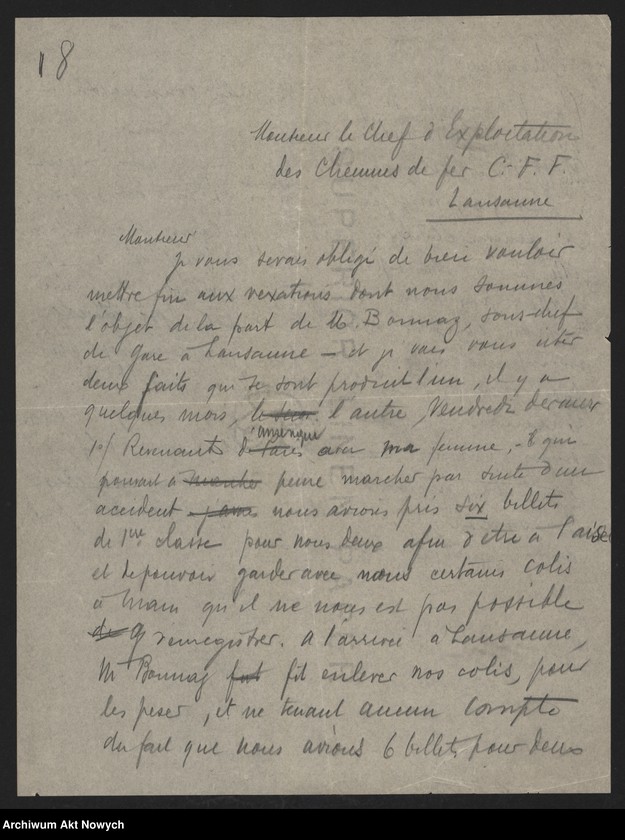 18
Monsieur le Chef d'Exploitation
des Chemins de fer C.F.F.
Lausanne
Monsieur
Je vous serais obligé de bien vouloir
mettre fin aux vexations dont nous sommes
l'objet de la part de M. Bonnaz, sous-chef
de gare à Lausanne – et je vais vous citer
deux faits qui se sont produit l'un, il y a
quelques mois, l'autre Vendredi dernier
1o/ Revenants d'amérique avec ma femme, – qui
pouvait à peine marcher par suite d'un
accident nous avions pris six billets
de 1re classe pour nous deux afin d'être à l'aise
et de pouvoir garder avec nous certains colis
à main qu'il ne nous est pas possible
d'enregistrer. A l'arrivée à Lausanne,
Mr Bonnaz fit enlever nos colis, pour
les peser, et ne tenant aucun compte
du fait que nous avions 6 billets pour deux
Archiwum Akt Nowych